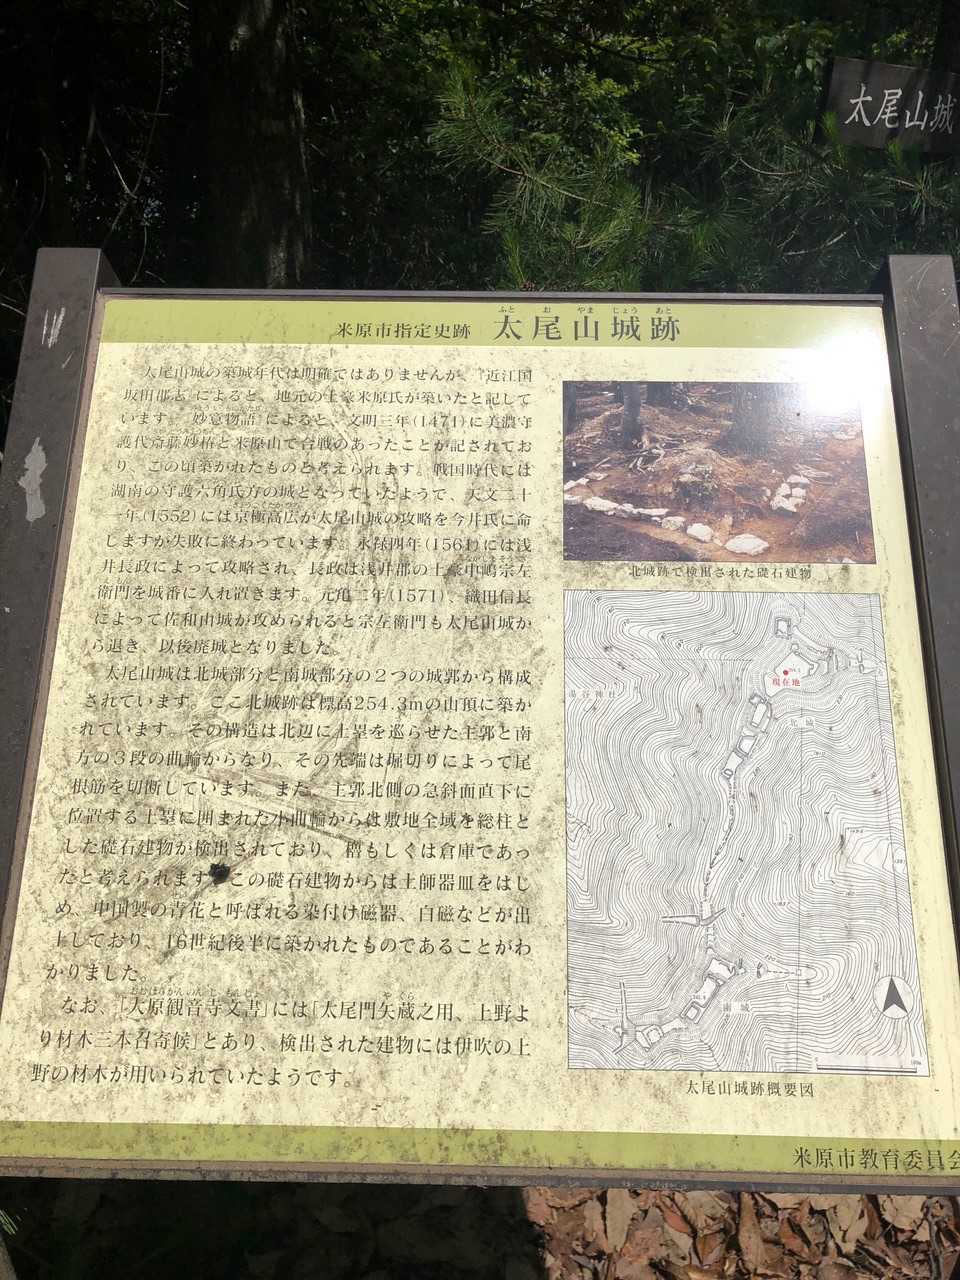 太尾山城
米原市指定史跡 太尾山城跡
ふと お やま じょう あと
太尾山城の築城年代は明確ではありませんが、『近江国
坂田郡志』によると、地元の土豪米原氏が築いたと記して
います。『妙意物語』によると、文明三年(1471)に美濃守
護代斎藤妙椿と米原山で合戦のあったことが記されてお
り、この頃築かれたものと考えられます。戦国時代には
湖南の守護六角氏方の城となっていたようで、天文二十
一年(1552)には京極高広が太尾山城の攻略を今井氏に命
しますが失敗に終わっています。永禄四年(1561)には浅
井長政によって攻略され、長政は浅井郡の土豪中嶋宗左
衛門を城番に入れ置きます。元亀二年(1571)、織田信長
によって佐和山城が攻められると宗左衛門も太尾山城か
ら退き、以後廃城となりました。
太尾山城は北城部分と南城部分の２つの城郭から構成
されています。ここ北城跡は標高254.3mの山頂に築か
れています。その構造は北辺に土塁を巡らせた主郭と南
方の３段の曲輪からなり、その先端は堀切りによって尾
根筋を切断しています。また、主郭北側の急斜面直下に
位置する土塁に囲まれた小曲輪からは敷地全域を総柱と
した礎石建物が検出されており、櫓もしくは倉庫であっ
たと考えられます。この礎石建物からは土師器皿をはじ
め、中国製の青花と呼ばれる染付け磁器、白磁などが出
土しており、16世紀後半に築かれたものであることがわ
かりました。
なお、「大原観音寺文書」には「太尾門矢蔵之用、上野よ
り材木三本召寄候」とあり、検出された建物には伊吹の上
野の材木が用いられていたようです。
北城跡で検出された礎石建物
現在地
湯谷神社
北城
南城
太尾山城跡概要図
米原市教育委員会